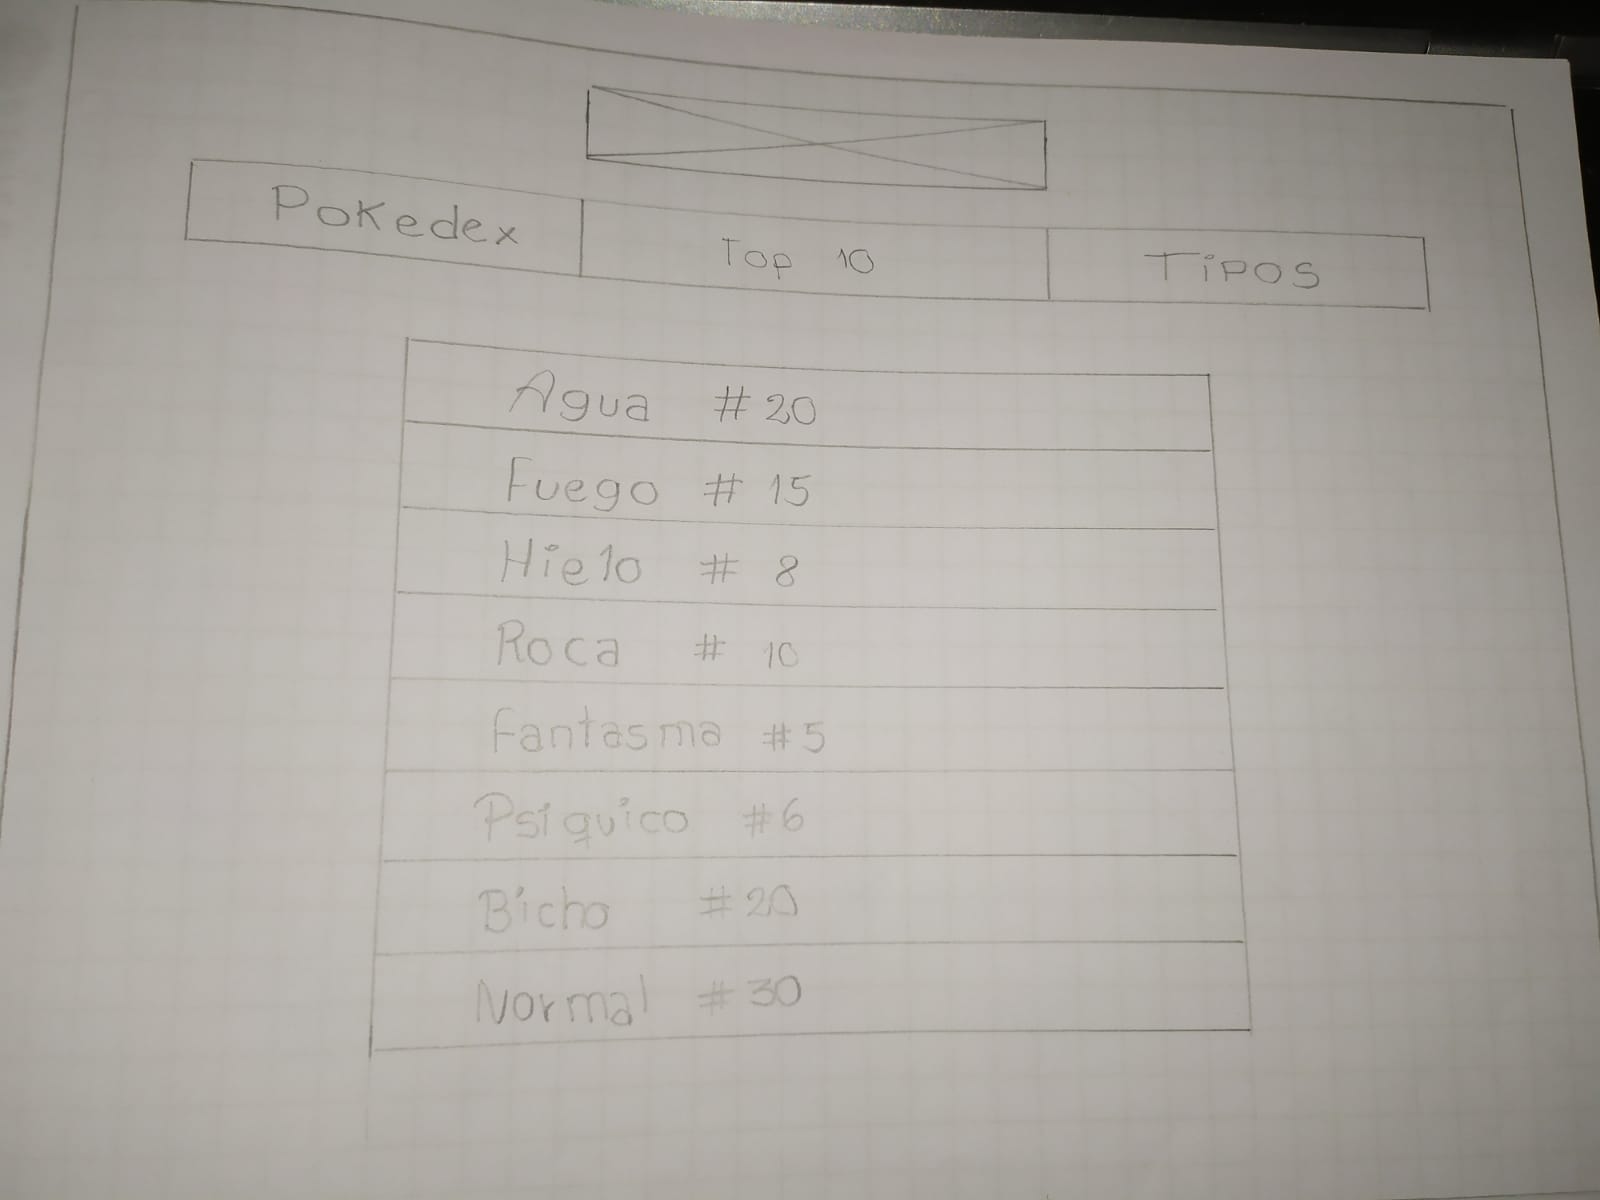 Pokedex Top 10 Tipos
Agua #20
Fuego # 15
Hielo # 8
Roca # 10
Fantasma #5
Psiquico #6
Bicho #20
Normal #30